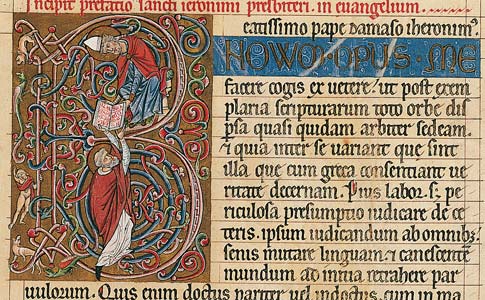 Incipit prefatio sancti ieronimi presbiteri. in euangelium.
B
eatissimo pape Damaso iheronim9.
NOWOM OPUS ME
facere cogis ex uetere? ut post exem
plaria scripturarum toto orbe dis
psa quasi quidam arbiter sedeam.
& quia inter se uariant que sint
illa que cum greca consentiant ue
ritate decernam. Pius labor. s; pe
riculosa presumptio iudicare de ce
teris. ipsum iudicandum ab omnib;
senis mutare linguam. & canescente
mundum ad initia retrahere par
uulorum. Quis enim doctus pariter uel indoctus. cum in ma